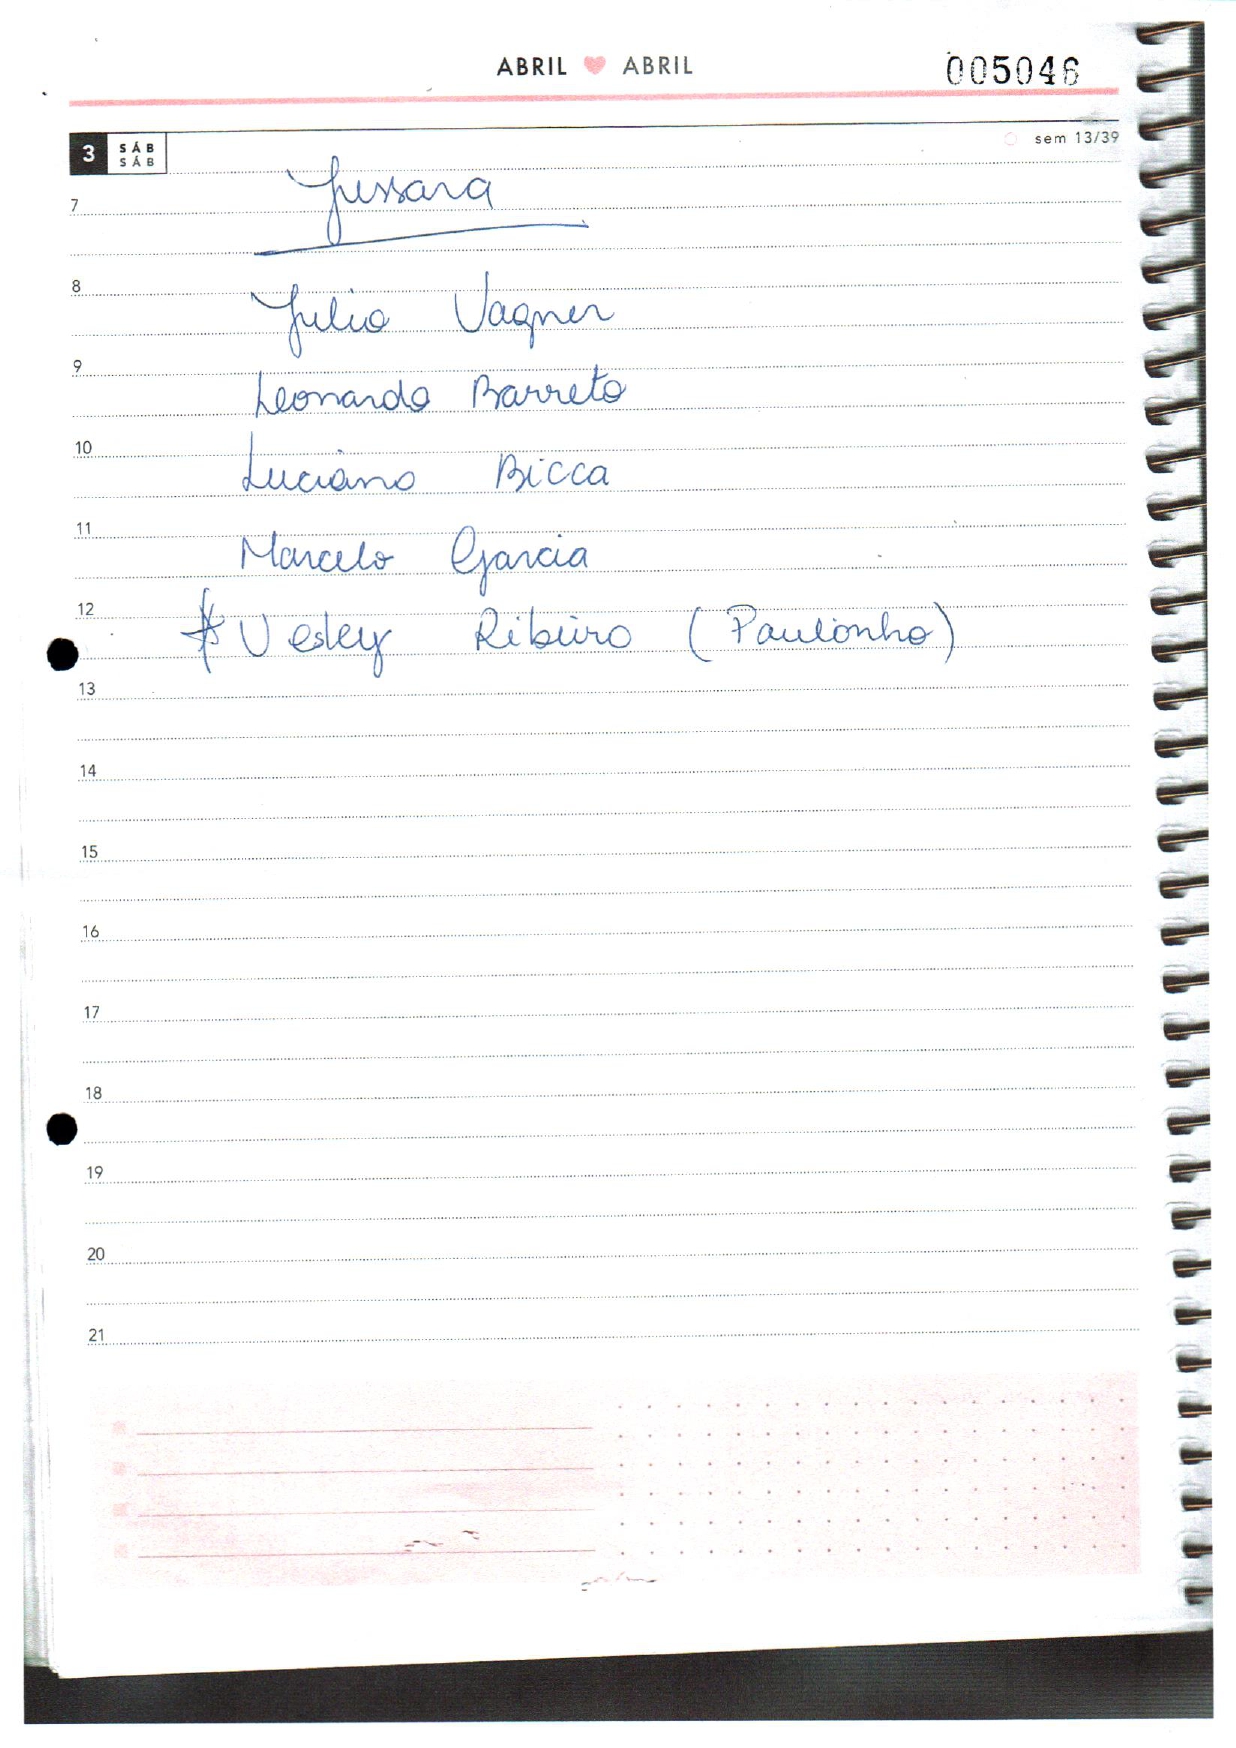 ABRIL ABRIL 005046
3 SÁB
SÁB
sem 13/39
Jussara
7
8
Julio Vagner
9
Leonardo Barreto
10
Luciano Bicca
11
Marcelo Garcia
12
Vesley Ribeiro (Paulinho)
13
14
15
16
17
18
19
20
21